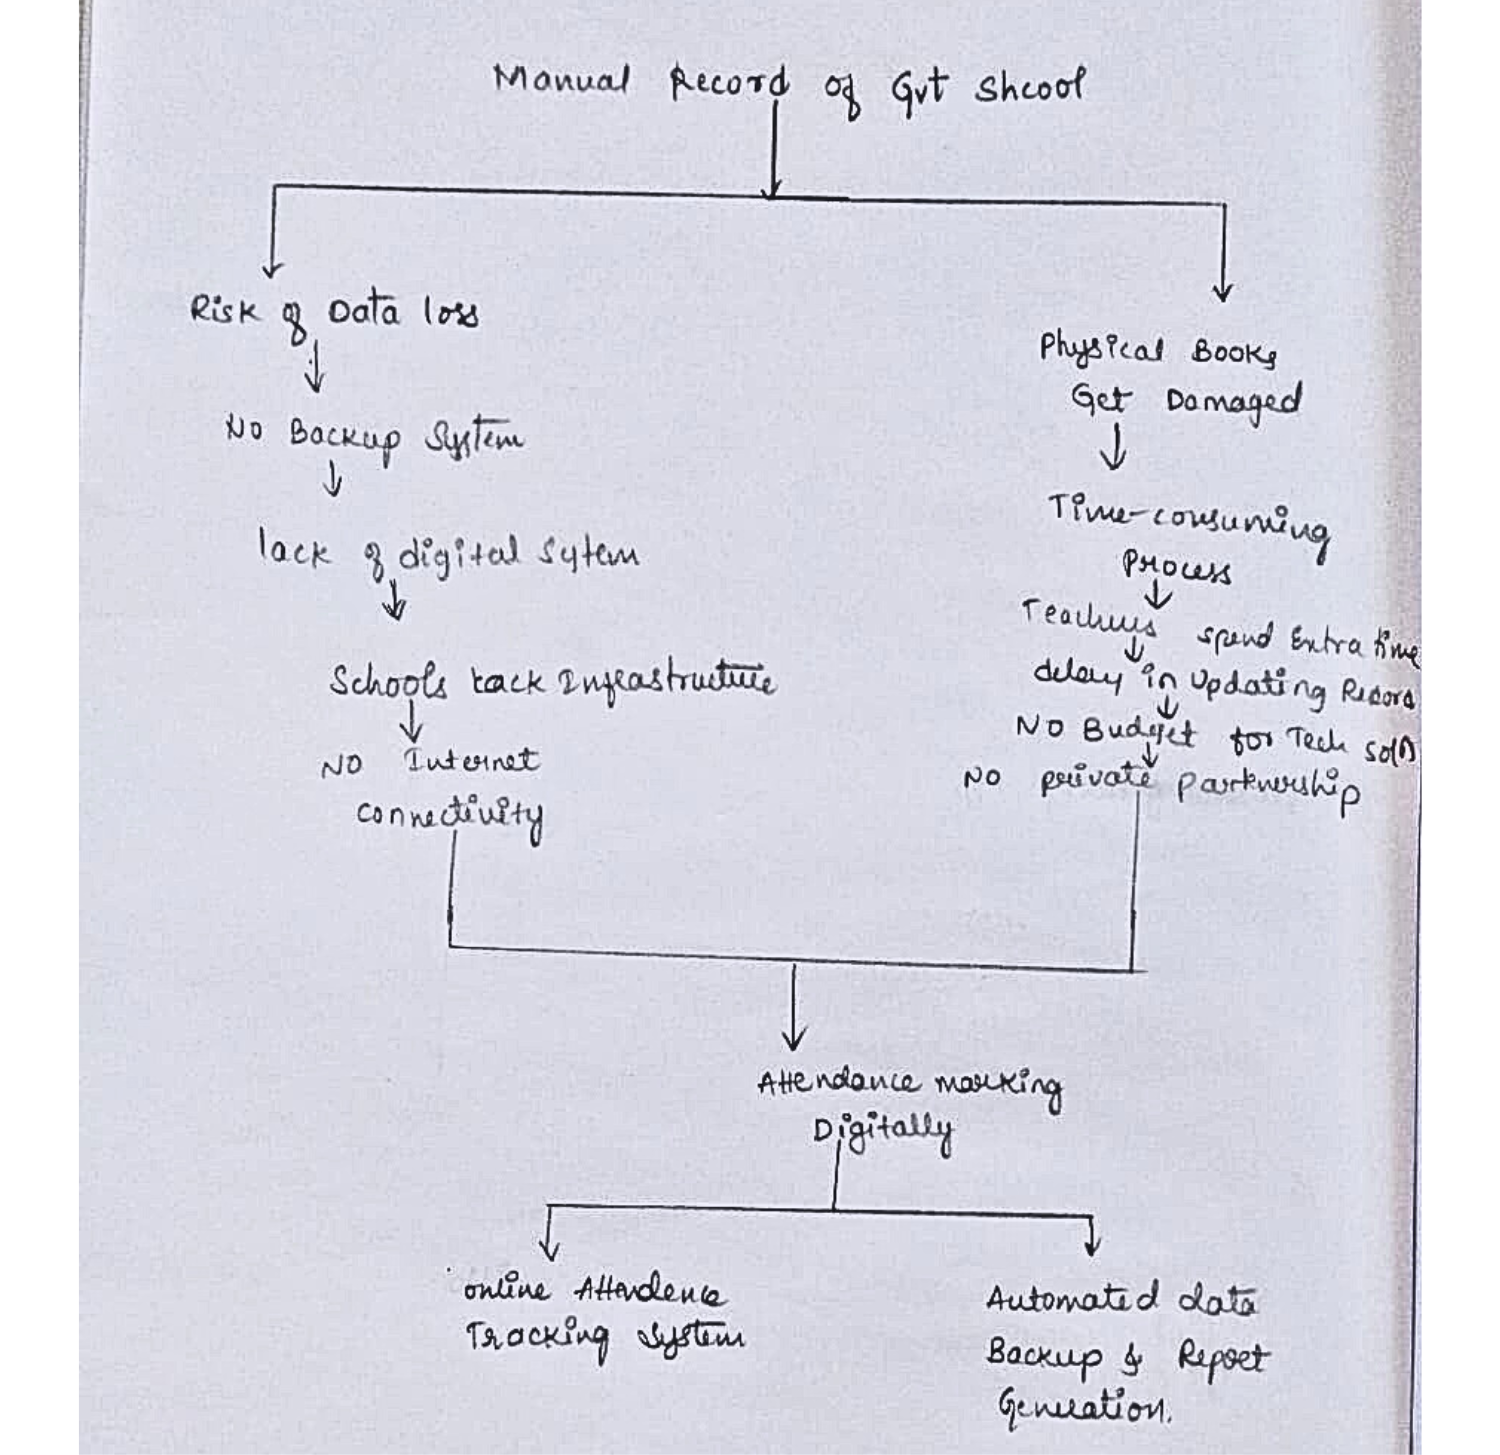 Manual Record of Gvt Shcool
Risk of Data loss
No Backup System
lack of digital Sytem
Schools lack Infrastructure
NO Internet
connectivity
Physical Books
Get Damaged
Time-consuming
Process
Teachers spend Extra time
delay in Updating Record
NO Budget for Tech
NO private partknership
Attendance marking
Digitally
online Attendence
Tracking System
Automated data
Backup & Report
Generation.